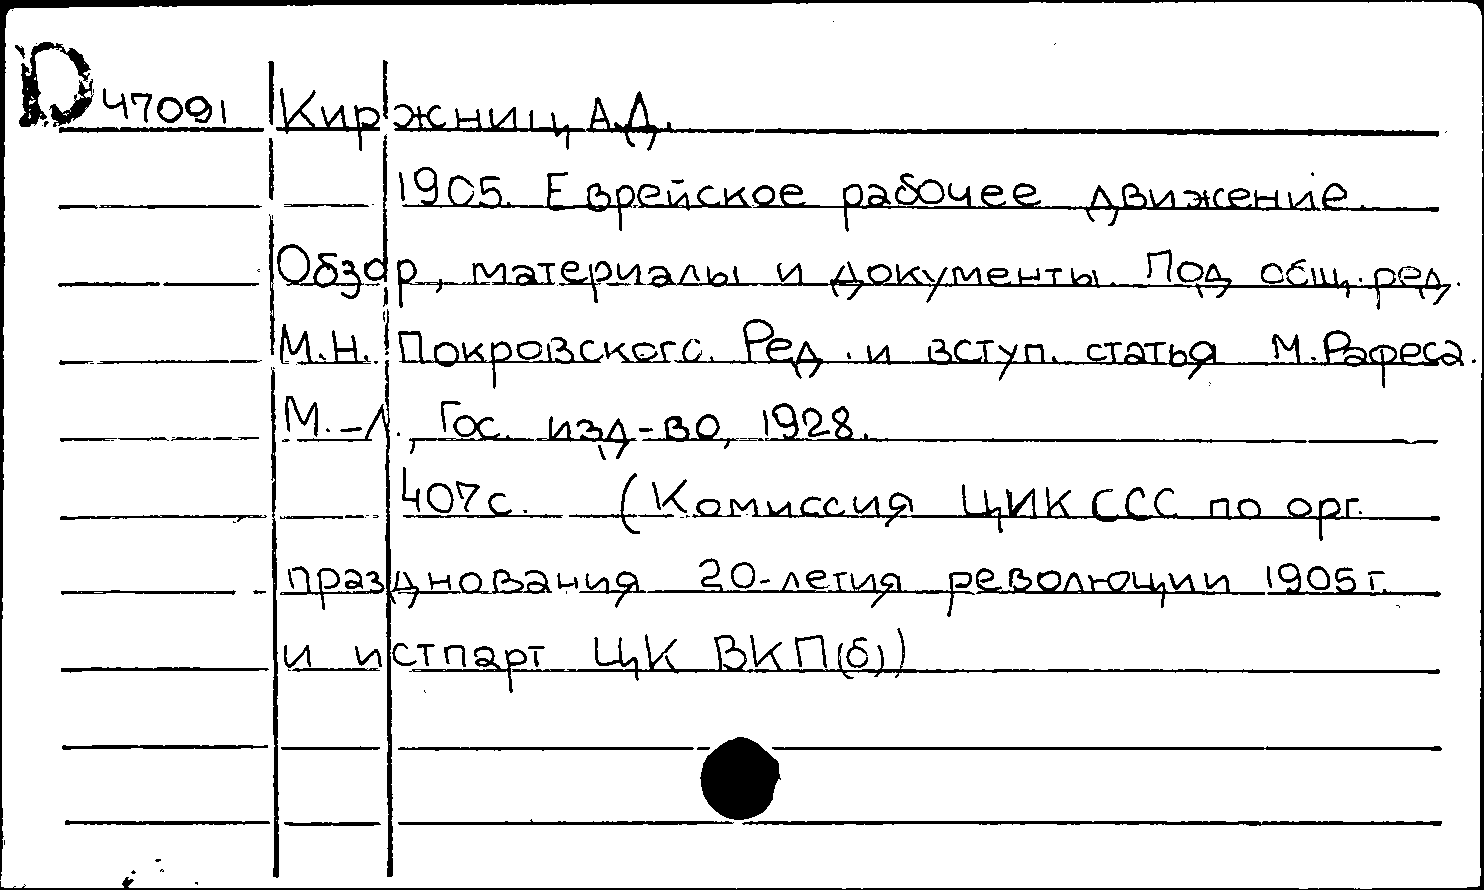 D 47091 Киржниц, А.Д.
1905. Еврейское рабочее движение.
Обзор, материалы и документы. Под общ. ред.
М.Н. Покровского. Ред. и вступ. статья М.Рафеса.
М.-Л., Гос. изд-во, 1928.
407с. (Комиссия ЦИК ССС по орг.
празднования 20-летия революции 1905г.
и истпарт ЦК ВКП(б))